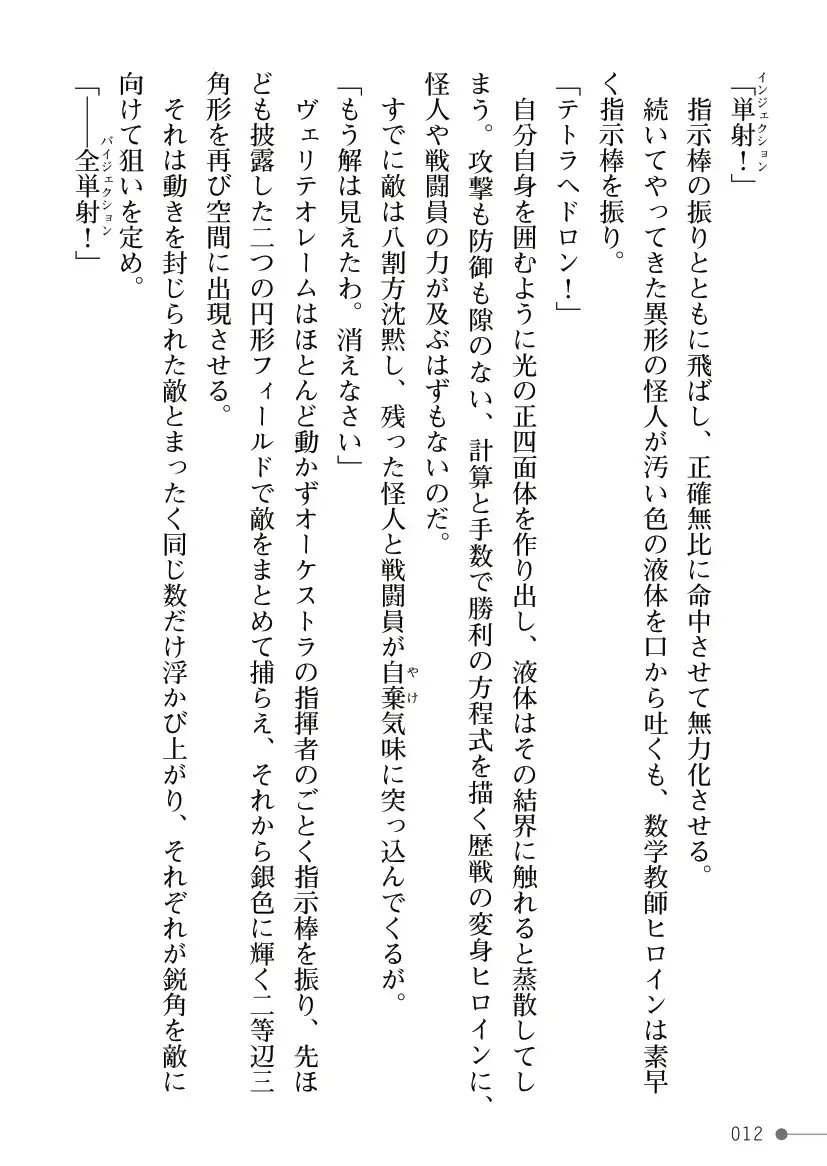 「単射！」
インジェクション
　指示棒の振りとともに飛ばし、正確無比に命中させて無力化させる。
　続いてやってきた異形の怪人が汚い色の液体を口から吐くも、数学教師ヒロインは素早
く指示棒を振り。
「テトラヘドロン！」
　自分自身を囲むように光の正四面体を作り出し、液体はその結界に触れると蒸散してし
まう。攻撃も防御も隙のない、計算と手数で勝利の方程式を描く歴戦の変身ヒロインに、
怪人や戦闘員の力が及ぶはずもないのだ。
　すでに敵は八割方沈黙し、残った怪人と戦闘員が自棄気味に突っ込んでくるが。
やけ
「もう解は見えたわ。消えなさい」
　ヴェリテオレームはほとんど動かずオーケストラの指揮者のごとく指示棒を振り、先ほ
ども披露した二つの円形フィールドで敵をまとめて捕らえ、それから銀色に輝く二等辺三
角形を再び空間に出現させる。
　それは動きを封じられた敵とまったく同じ数だけ浮かび上がり、それぞれが鋭角を敵に
向けて狙いを定め。
「――全単射！」
バイジェクション
012